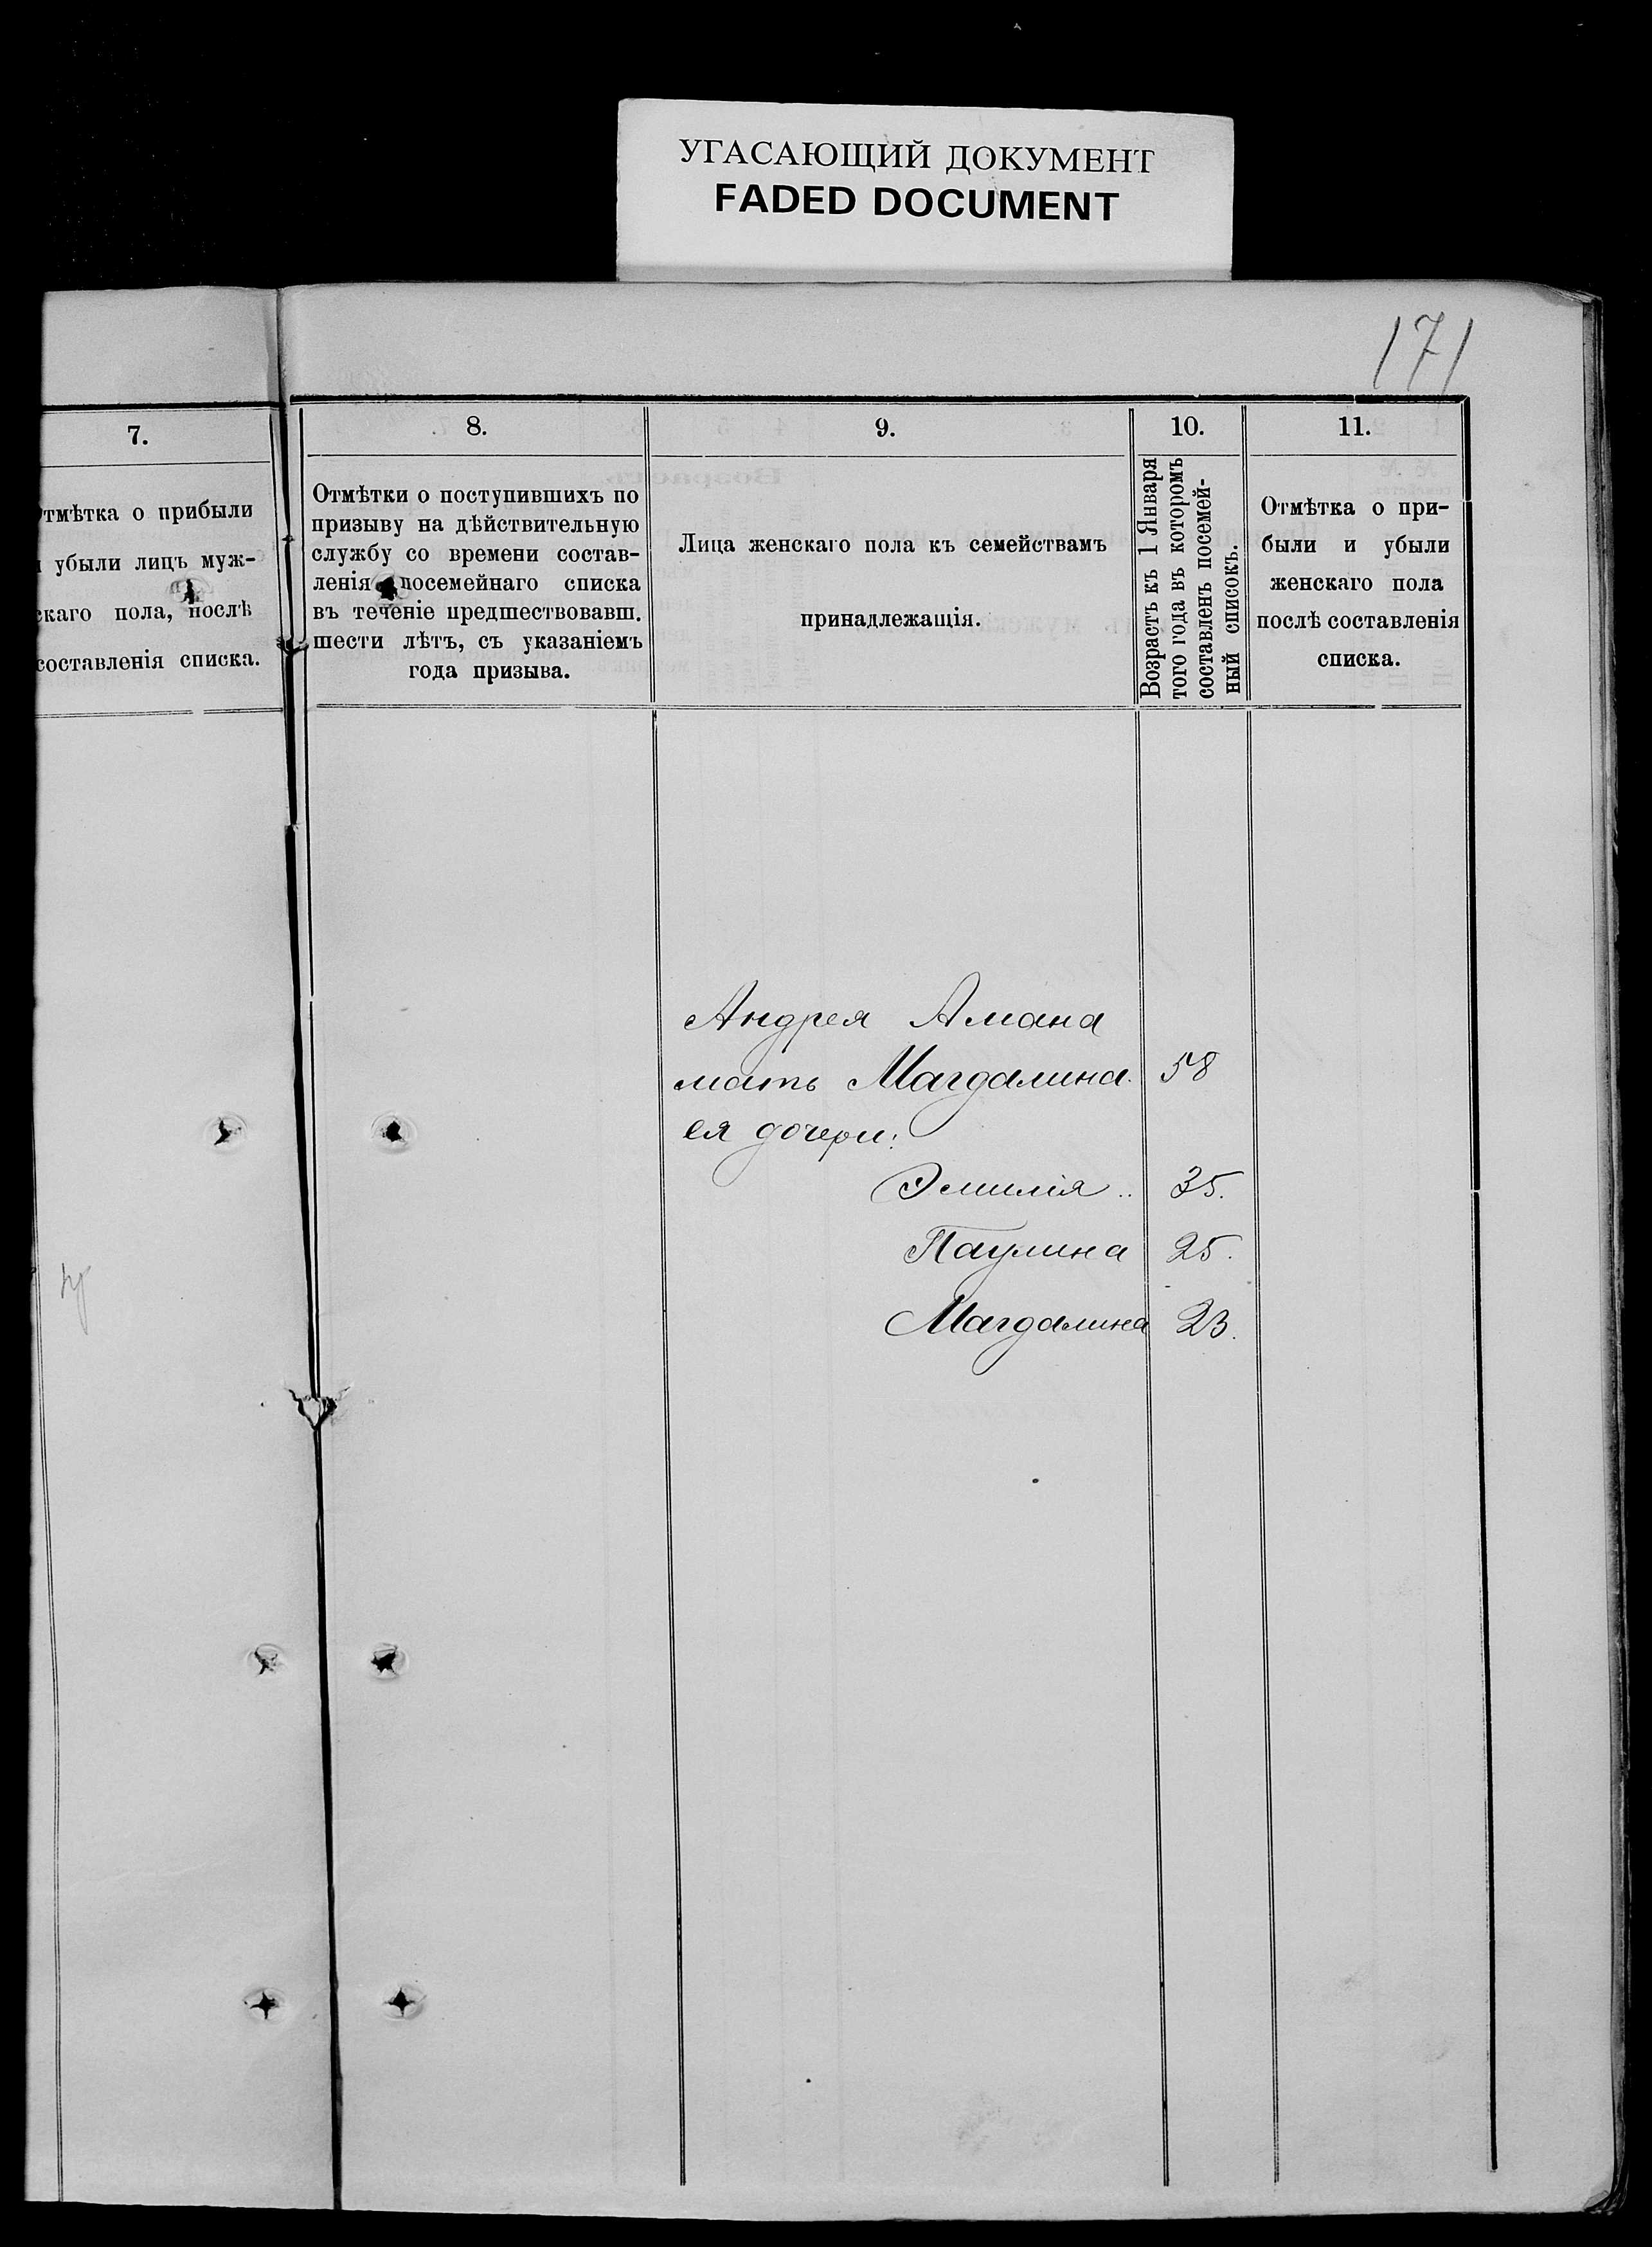 УГАСАЮЩИЙ ДОКУМЕНТ
FADED DOCUMENT
171
7.
8.
9.
10.
11.
Отмѣтка о прибыли
и убыли лицъ муж-
скаго пола, послѣ
составленія списка.
Отмѣтки о поступившихъ по
призыву на дѣйствительную
службу со времени состав-
ленія посемейнаго списка
въ теченіе предшествовавш.
шести лѣтъ, съ указаніемъ
года призыва.
Лица женскаго пола къ семействамъ
принадлежащія.
Возрастъ къ 1 Января
того года въ которомъ
составленъ посемей-
ный списокъ.
Отмѣтка о при-
были и убыли
женскаго пола
послѣ составленія
списка.
Андрея Амана
мать Магдалина. 58
ея дочери:
Эмилія .. 35.
Паулина 25.
Магдалина 23.